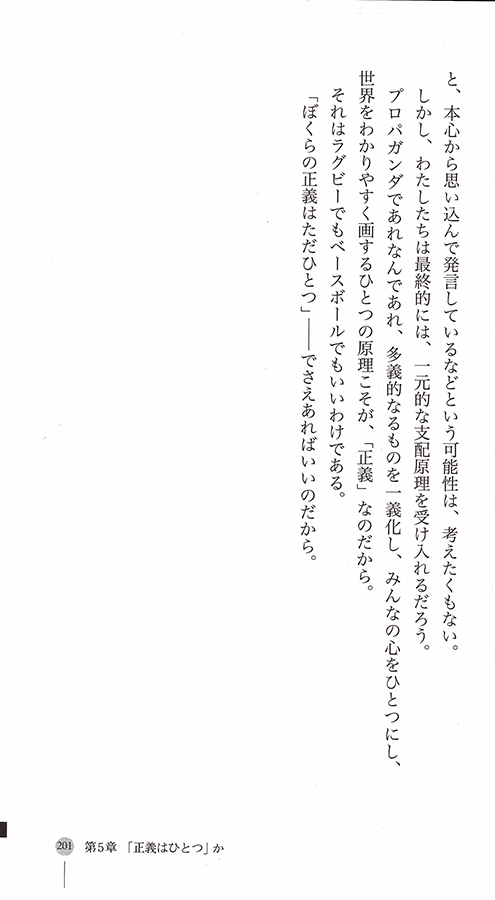 と、本心から思い込んで発言しているなどという可能性は、考えたくもない。
しかし、わたしたちは最終的には、一元的な支配原理を受け入れるだろう。
プロパガンダであれなんであれ、多義的なるものを一義化し、みんなの心をひとつにし、
世界をわかりやすく画するひとつの原理こそが、「正義」なのだから。
それはラグビーでもベースボールでもいいわけである。
「ぼくらの正義はただひとつ」――でさえあればいいのだから。
201 第5章 「正義はひとつ」か